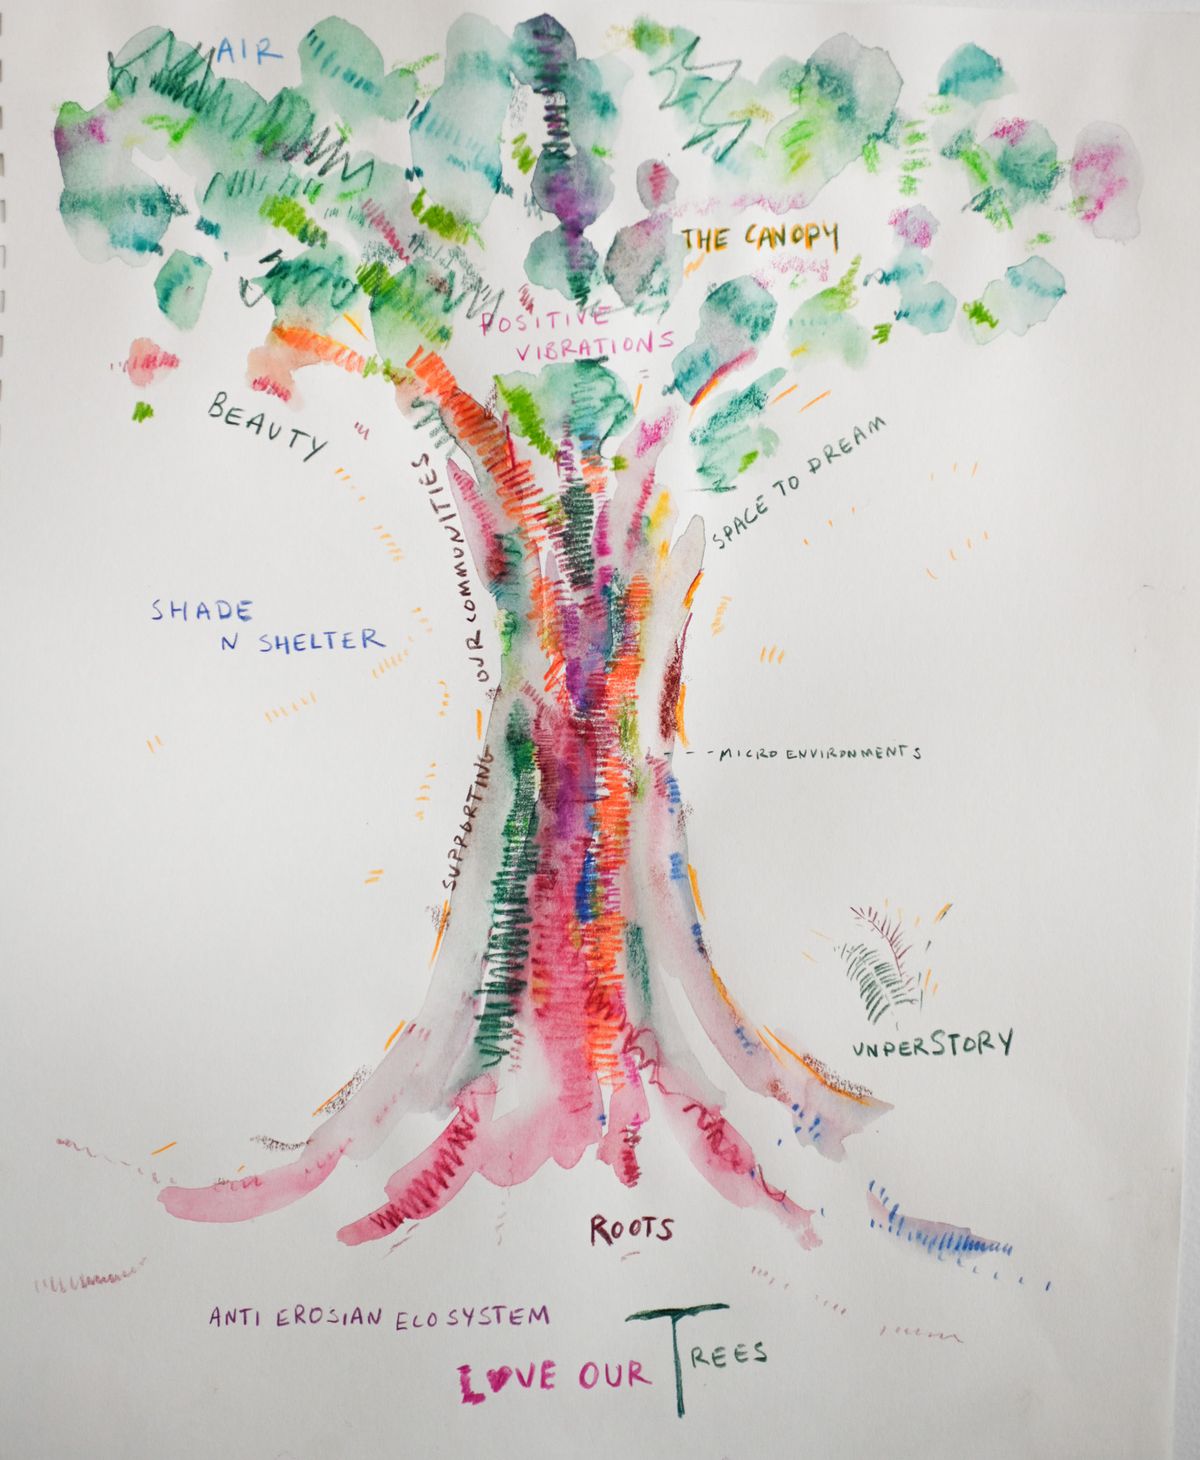 AIR
THE CANOPY
POSITIVE
VIBRATIONS
BEAUTY
SPACE TO DREAM
SUPPORTING OUR COMMUNITIES
SHADE
N SHELTER
MICRO ENVIRONMENTS
UNDERSTORY
ROOTS
ANTI EROSIAN ECOSYSTEM
L♥VE OUR TREES